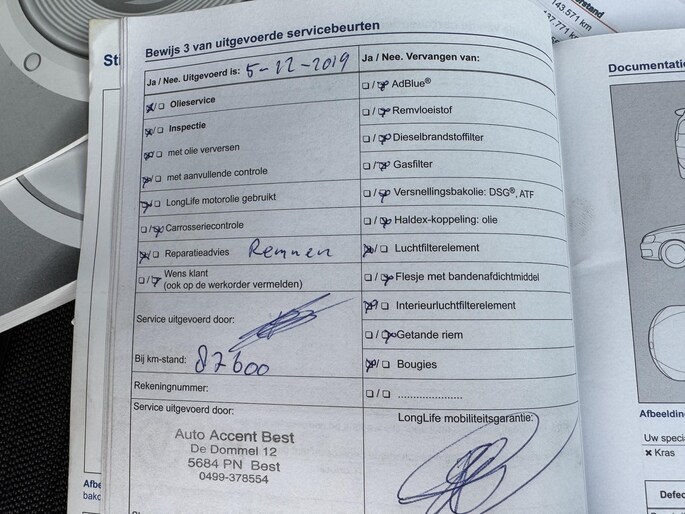 143.571 km
137.771 km
Bewijs 3 van uitgevoerde servicebeurten
Ja / Nee. Uitgevoerd is: 5-12-2019
Olieservice
Inspectie
met olie verversen
met aanvullende controle
LongLife motorolie gebruikt
Carrosseriecontrole
Reparatieadvies Remmen
Wens klant
(ook op de werkorder vermelden)
Service uitgevoerd door:
Bij km-stand: 87600
Rekeningnummer:
Service uitgevoerd door:
Auto Accent Best
De Dommel 12
5684 PN Best
0499-378554
Ja / Nee. Vervangen van:
AdBlue®
Remvloeistof
Dieselbrandstoffilter
Gasfilter
Versnellingsbakolie: DSG®, ATF
Haldex-koppeling: olie
Luchtfilterelement
Flesje met bandenafdichtmiddel
Interieurluchtfilterelement
Getande riem
Bougies
.....................
LongLife mobiliteitsgarantie:
Documentati
Afbeelding
Uw speci
× Kras
Defec